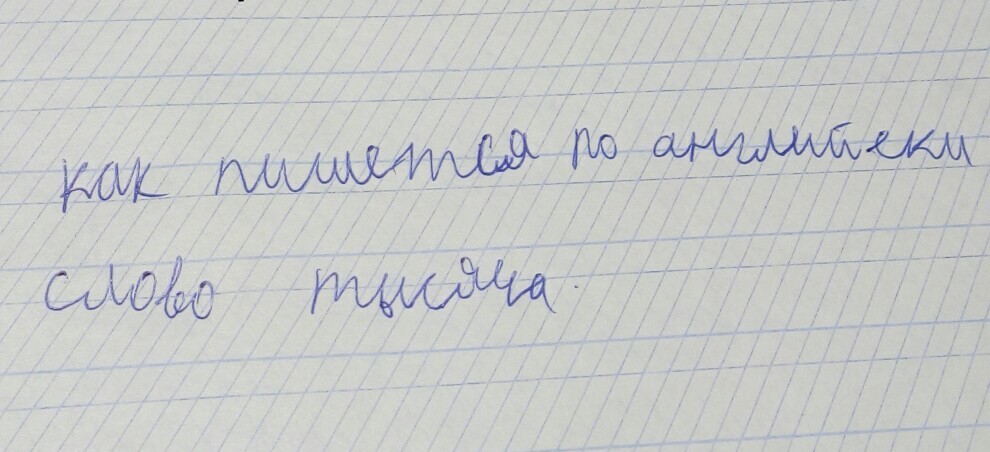 как пишется по английски
слово тысяча.